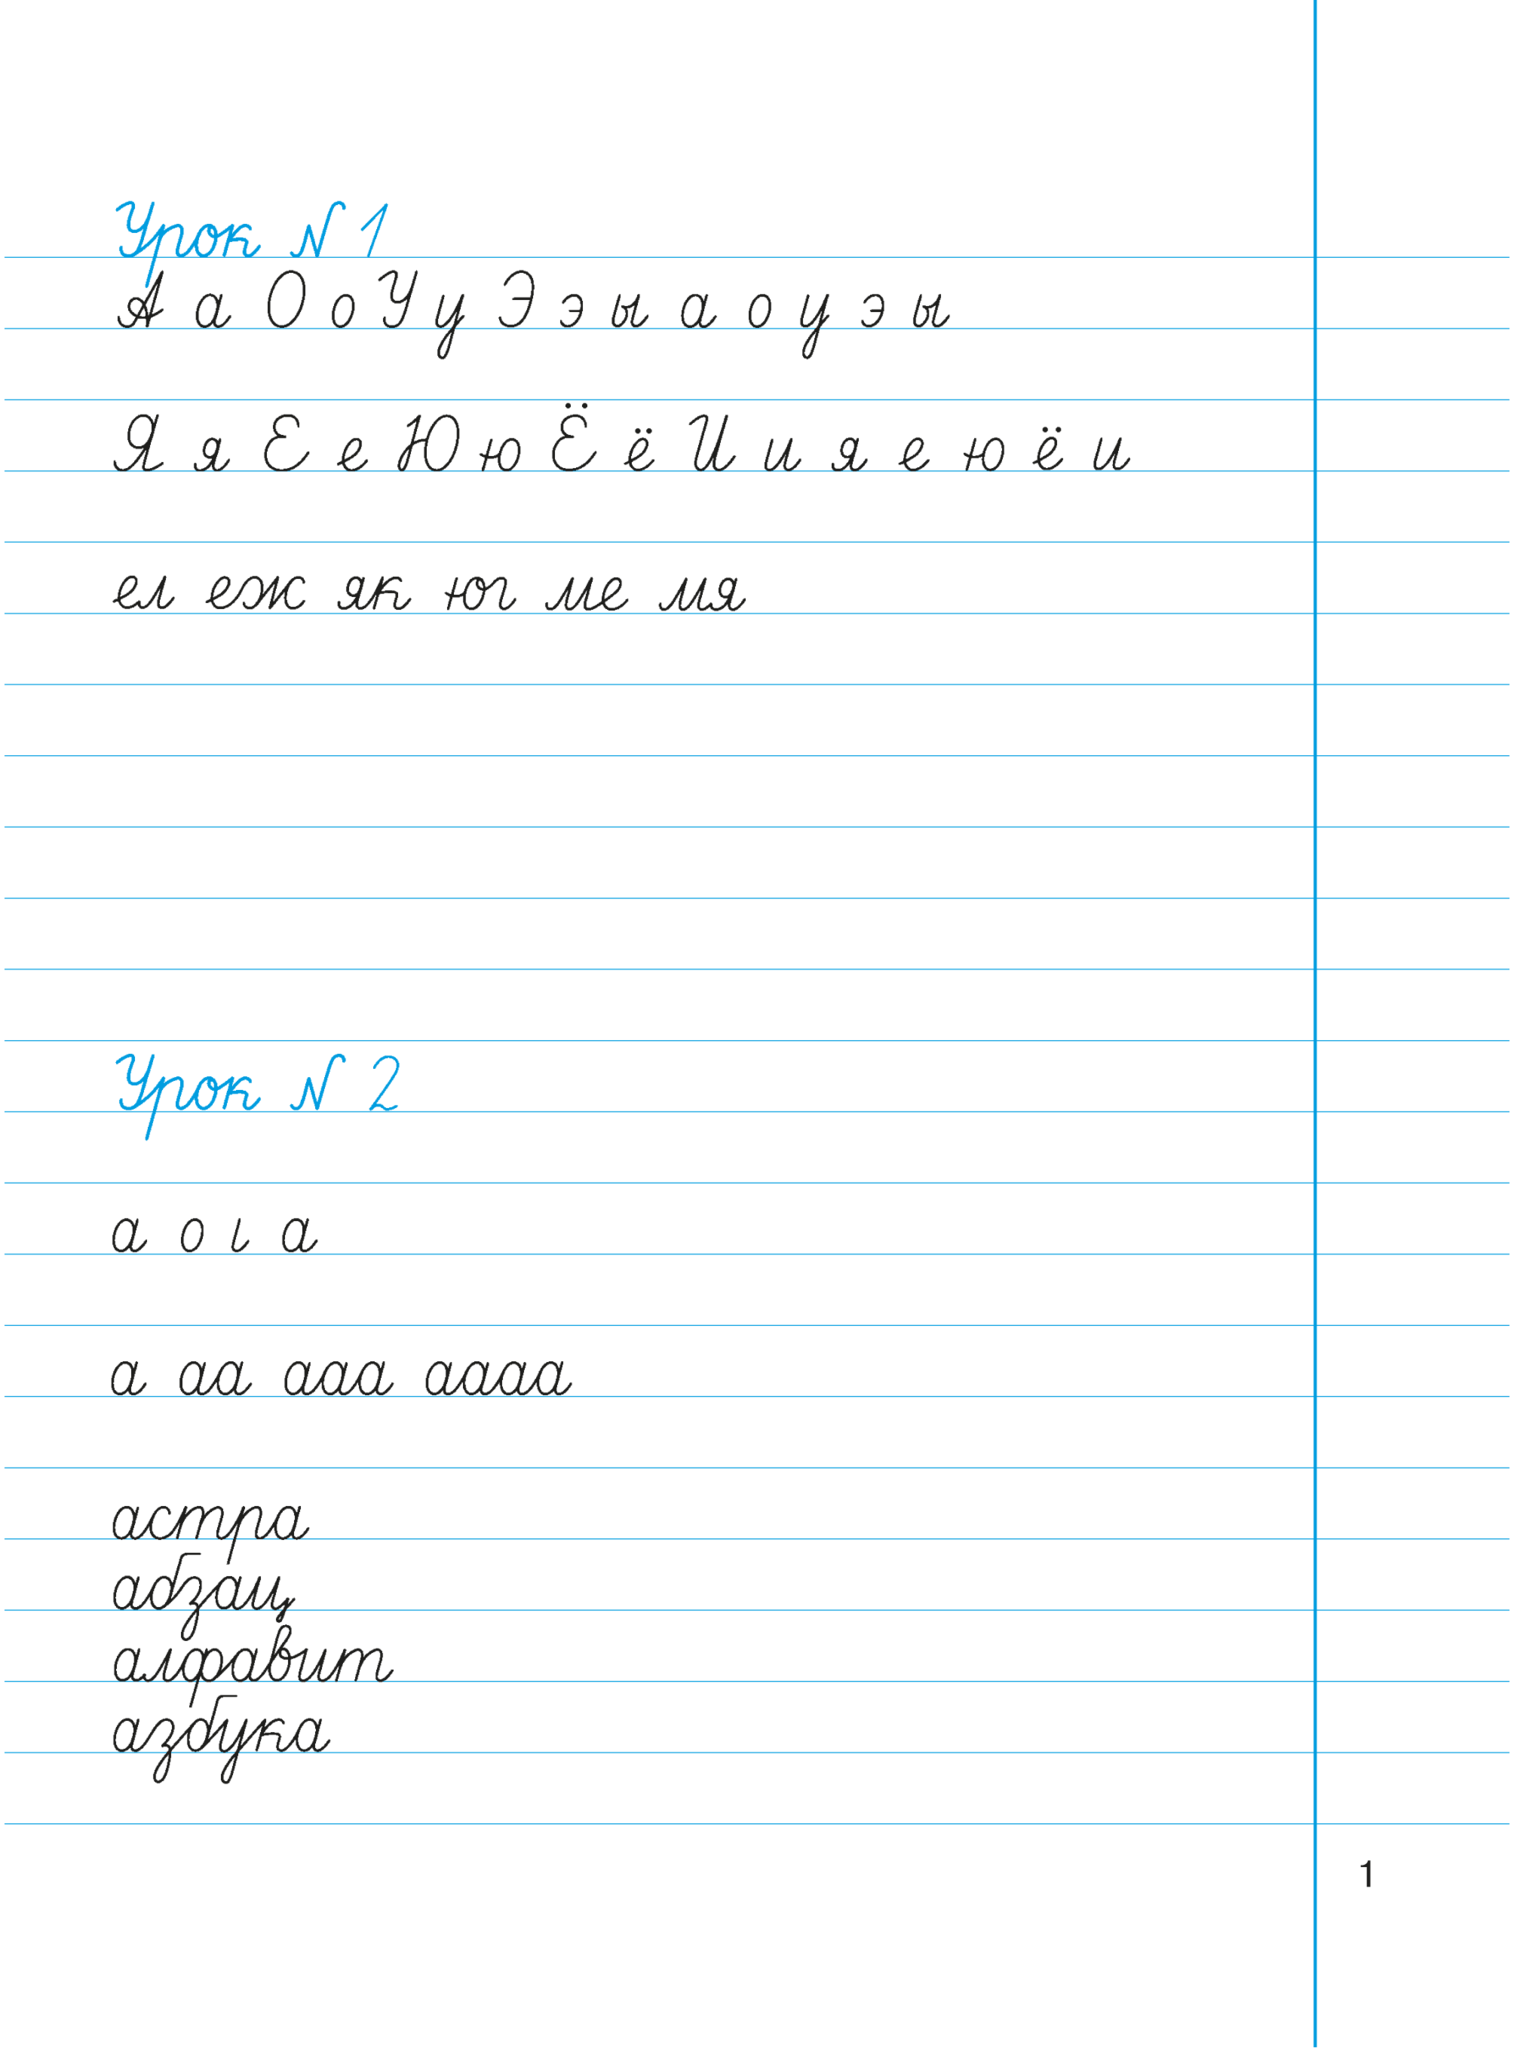 Урок N 1
А а О о У у Э э ы а о у э ы
Я я Е е Ю ю Ё ё И и я е ю ё и
ел еж як юг ме мя
Урок N 2
а о ι а
а аа ааа аааа
астра
абзац
алфавит
азбука
1